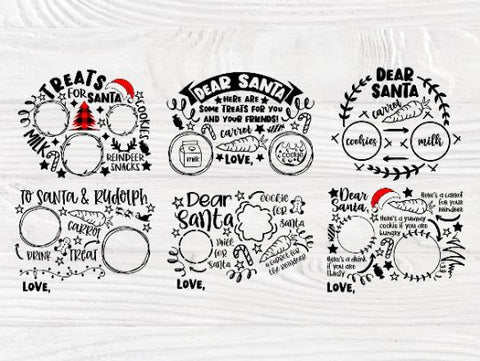 TREATS
FOR
SANTA
COOKIES
MILK
REINDEER
SNACKS
DEAR SANTA
HERE ARE
SOME TREATS FOR YOU
AND YOUR FRIENDS!
carrot
MILK
COOKIES
LOVE,
DEAR
SANTA
carrot
cookies
milk
TO SANTA & RUDOLPH
CARROT
DRINK
TREAT
LOVE,
Dear
Santa
Cookie
for
Santa
Milk
for
Santa
A carrot for
the reindeer
LOVE,
Dear
Santa,
Here's a carrot
for your
reindeer
Here's a yummy
cookie if you are
hungry
Here's a drink
if you are
thirsty
LOVE,